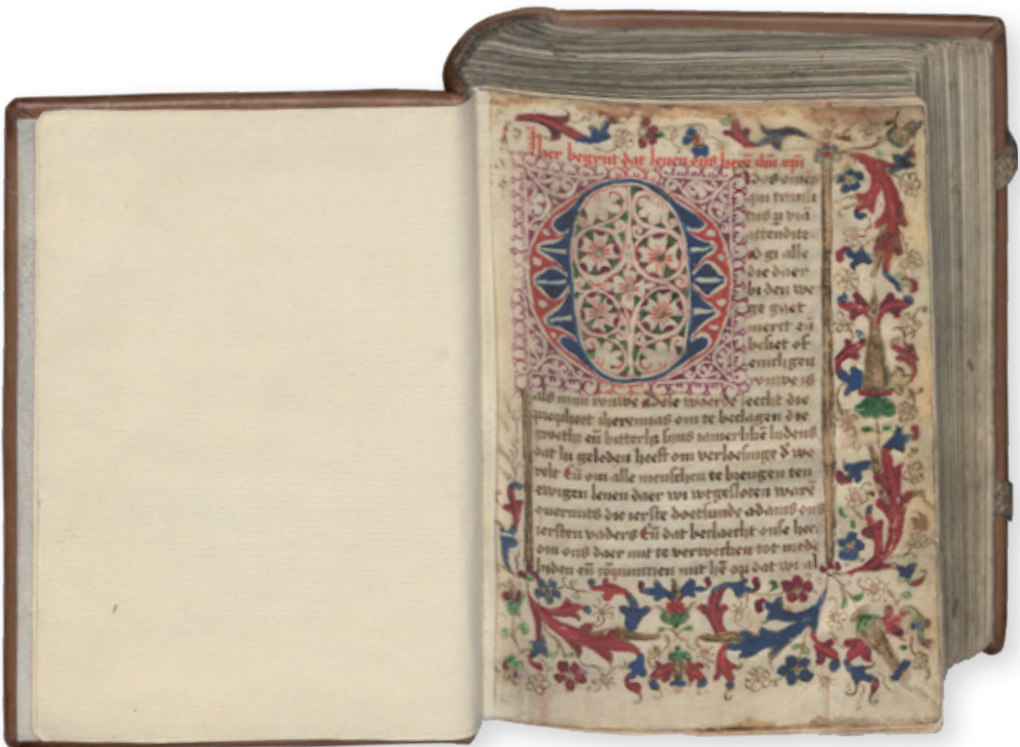 Hier begynt dat leuen ons herē
O vos omēs
qui transi
tis ꝑ viā
attendite
O gi alle
die daer
bi den we
ge gaet
merct eñ
besiet of
enich gen
rouwe is
als mijn rouwe Dese woerde seecht die
propheet iheremias om te beclagen die
groethz eñ bitterhz sijns iamerlikē lidens
dat hi geleden heeft om verloesinge d' we
relt Eñ om alle menschen te brengen ten
ewigen leuen daer wi wtgesloten warē
ouermits die ierste doetsunde adams ons
iersten vaders Eñ dat bedaecht onse her
om ons daer mit te verwecken tot mede
liden eñ mit hē op dat wi al